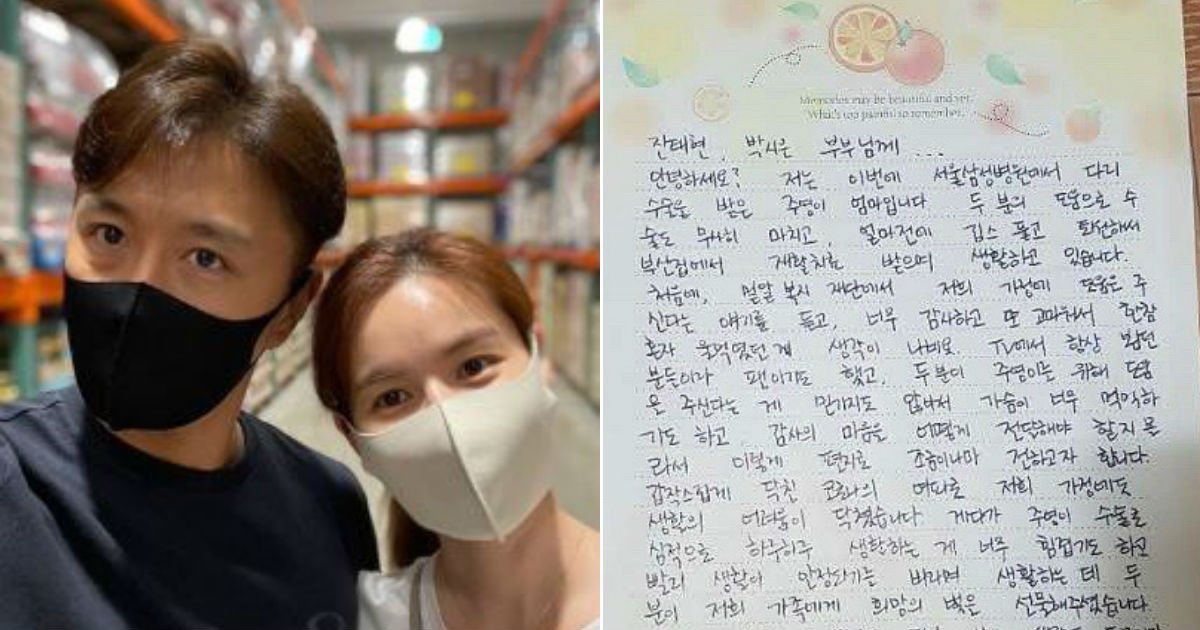 Memories may be beautiful and yet.
What's too painful to remember.
진태현, 박시은 부부님께 ...
안녕하세요? 저는 이번에 서울삼성병원에서 다리
수술을 받은 주영이 엄마입니다 두 분의 도움으로 수
술도 무사히 마치고, 얼마전에 깁스 풀고 퇴원해서
부산집에서 재활치료 받으며 생활하고 있습니다.
처음에, 밀알 복지 재단에서 저희 가정에 도움을 주
신다는 얘기를 듣고, 너무 감사하고 또 고마워서 한참
혼자 울먹였던 게 생각이 나네요. TV에서 항상 봤던
분들이라 팬이기도 했고, 두분이 주영이를 위해 도움
을 주신다는 게 믿기지도 않아서 가슴이 너무 먹먹하
기도 하고 감사의 마음을 어떻게 전달해야 할지 몰
라서 이렇게 편지로 조금이나마 전하고자 합니다.
갑작스럽게 닥친 코로나의 여파로 저희 가정에도
생활의 어려움이 닥쳤습니다 게다가 주영이 수술로
심적으로 하루하루 생활하는 게 너무 힘겹기도 하고
빨리 생활이 안정되기를 바라며 생활하는 데 두
분이 저희 가족에게 희망의 빛을 선물해주셨습니다.